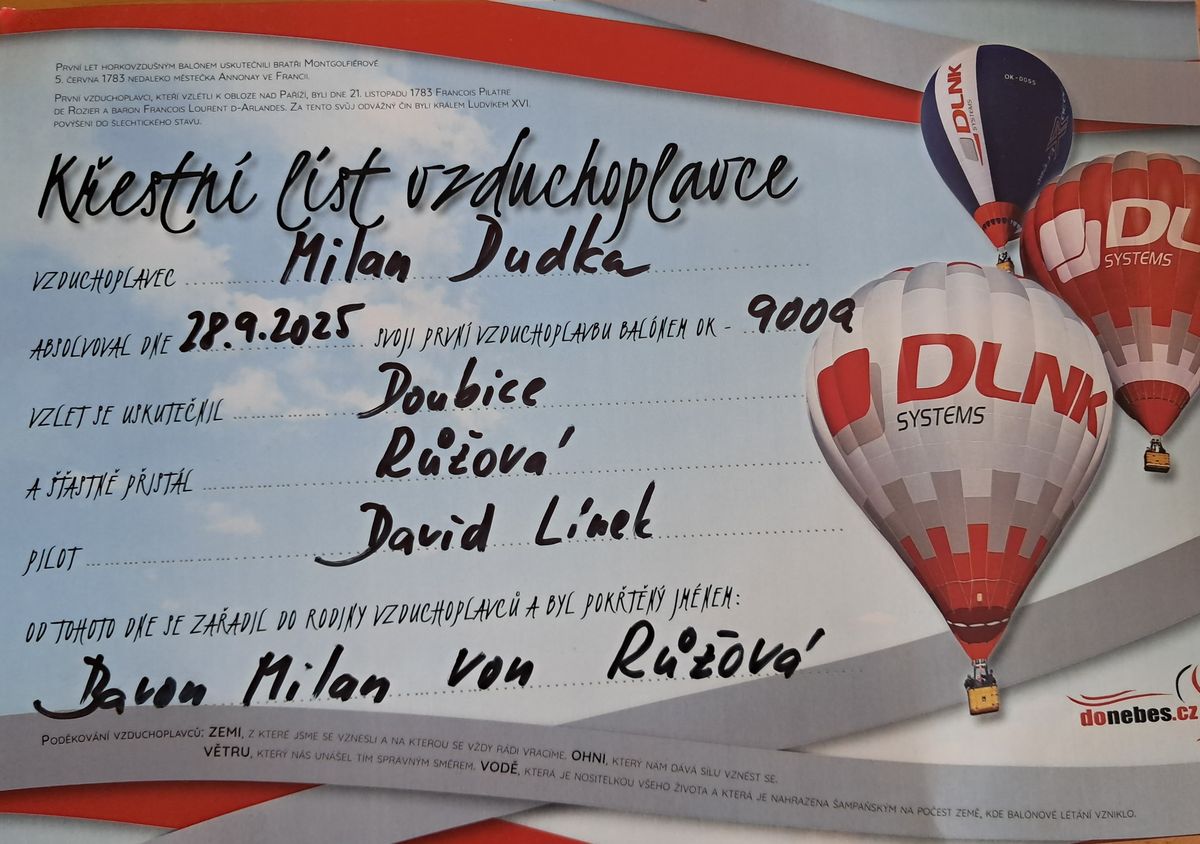 PRVNÍ LET HORKOVZDUŠNÝM BALONEM USKUTEČNILI BRATŘI MONTGOLFIÉROVÉ
5. ČERVNA 1783 NEDALEKO MĚSTEČKA ANNONAY VE FRANCII.
PRVNÍ VZDUCHOPLAVCI, KTEŘÍ VZLÉTLI K OBLOZE NAD PAŘÍŽÍ, BYLI DNE 21. LISTOPADU 1783 FRANCOIS PILATRE
DE ROZIER A BARON FRANCOIS LOURENT D-ARLANDES. ZA TENTO SVŮJ ODVÁŽNÝ ČIN BYLI KRÁLEM LUDVÍKEM XVI.
POVÝŠENI DO ŠLECHTICKÉHO STAVU.
Křestní list vzduchoplavce
VZDUCHOPLAVEC Milan Dudka
ABSOLVOVAL DNE 28.9.2025 SVOJI PRVNÍ VZDUCHOPLAVBU BALÓNEM OK - 9009
VZLET SE USKUTEČNIL Doubice
A ŠŤASTNĚ PŘISTÁL Růžová
PILOT David Línek
OD TOHOTO DNE SE ZAŘADIL DO RODINY VZDUCHOPLAVCŮ A BYL POKŘTĚNÝ JMÉNEM:
Baron Milan von Růžová
PODĚKOVÁNÍ VZDUCHOPLAVCŮ: ZEMI, Z KTERÉ JSME SE VZNESLI A NA KTEROU SE VŽDY RÁDI VRACÍME. OHNI, KTERÝ NÁM DÁVÁ SÍLU VZNÉST SE.
VĚTRU, KTERÝ NÁS UNÁŠEL TÍM SPRÁVNÝM SMĚREM. VODĚ, KTERÁ JE NOSITELKOU VŠEHO ŽIVOTA A KTERÁ JE NAHRAZENA ŠAMPAŇSKÝM NA POČEST ZEMĚ, KDE BALONOVÉ LÉTÁNÍ VZNIKLO.
DLNK
SYSTEMS
OK-0055
DL
SYSTEMS
DLNK
SYSTEMS
donebes.cz